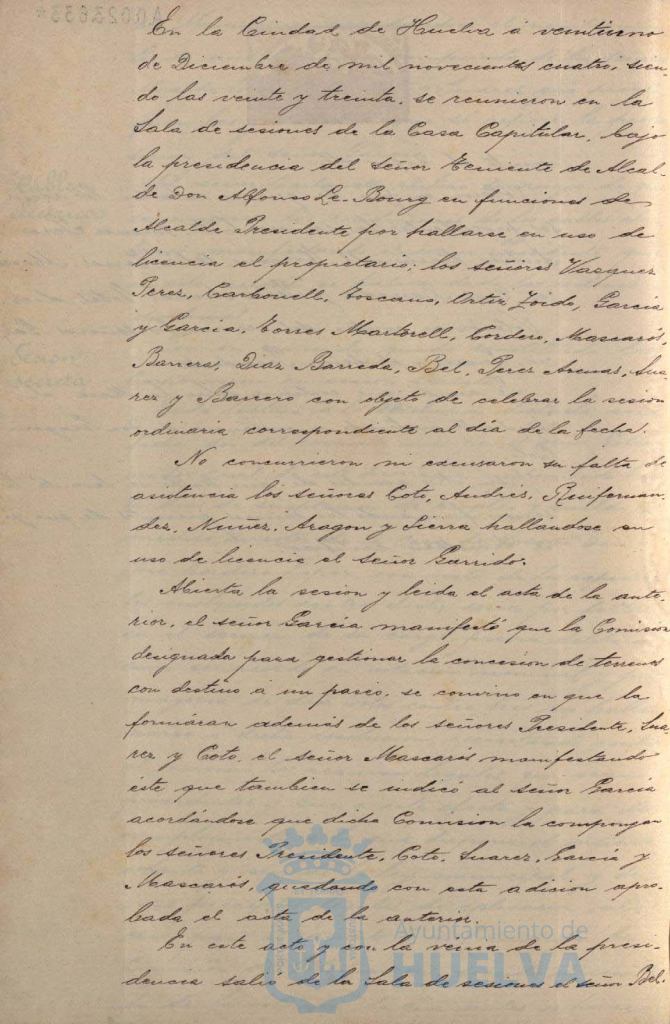 En la Ciudad de Huelva á veintiuno
de Diciembre de mil novecientos cuatro, sien-
do las veinte y treinta, se reunieron en la
Sala de sesiones de la Casa Capitular, bajo
la presidencia del señor Teniente de Alcal-
de Don Alfonso Le-Bourg en funciones de
Alcalde Presidente por hallarse en uso de
licencia el propietario; los señores Vazquez
Perez, Carbonell, Toscano, Ortiz Zoido, Garcia
y Garcia, Torres Martorell, Cordero, Mascarós,
Barrera, Diaz Barreda, Bel, Perez Arenas, Sua
rez y Barrero con objeto de celebrar la sesión
ordinaria correspondiente al día de la fecha.
No concurrieron ni excusaron su falta de
asistencia los señores Coto, Andrés, Ruifernan-
dez, Nuñez, Aragon y Sierra hallándose en
uso de licencia el señor Garrido.
Abierta la sesion y leida el acta de la ante-
rior, el señor García manifestó que la Comision
designada para gestionar la concesion de terrenos
con destino á un paseo, se convino en que la
formáran además de los señores Presidente, Sua
rez y Coto, el señor Mascarós manifestando
éste que tambien se indicó al señor García
acordándose que dicha Comision la compongan
los señores Presidente, Coto, Suarez, García y
Mascarós, quedando con esta adicion apro-
bada el acta de la anterior.
En este acto y con la venia de la presi-
dencia salió de la Sala de sesiones el señor Bel.
Ayuntamiento de
HUELVA